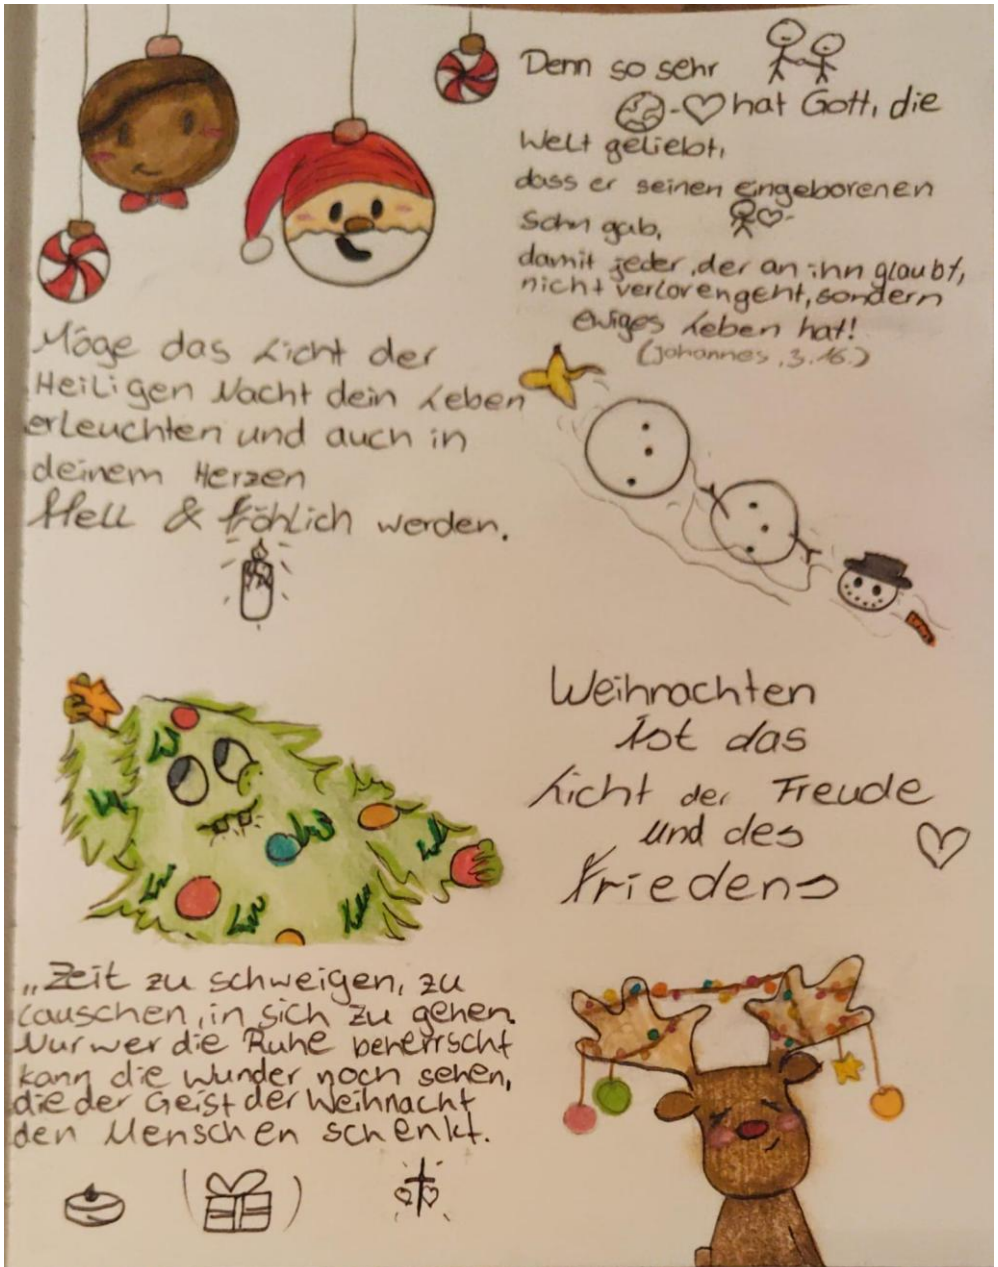 Denn so sehr
hat Gott, die
Welt geliebt,
dass er seinen eingeborenen
Sohn gab,
damit jeder, der an ihn glaubt,
nicht verlorengeht, sondern
ewiges Leben hat!
(Johannes, 3.16.)
Möge das Licht der
Heiligen Nacht dein Leben
erleuchten und auch in
deinem Herzen
Hell & fröhlich werden.
Weihnachten
ist das
Licht der Freude
und des
Friedens
„Zeit zu schweigen, zu
lauschen, in sich zu gehen.
Nur wer die Ruhe beherrscht
kann die Wunder noch sehen,
die der Geist der Weihnacht
den Menschen schenkt.